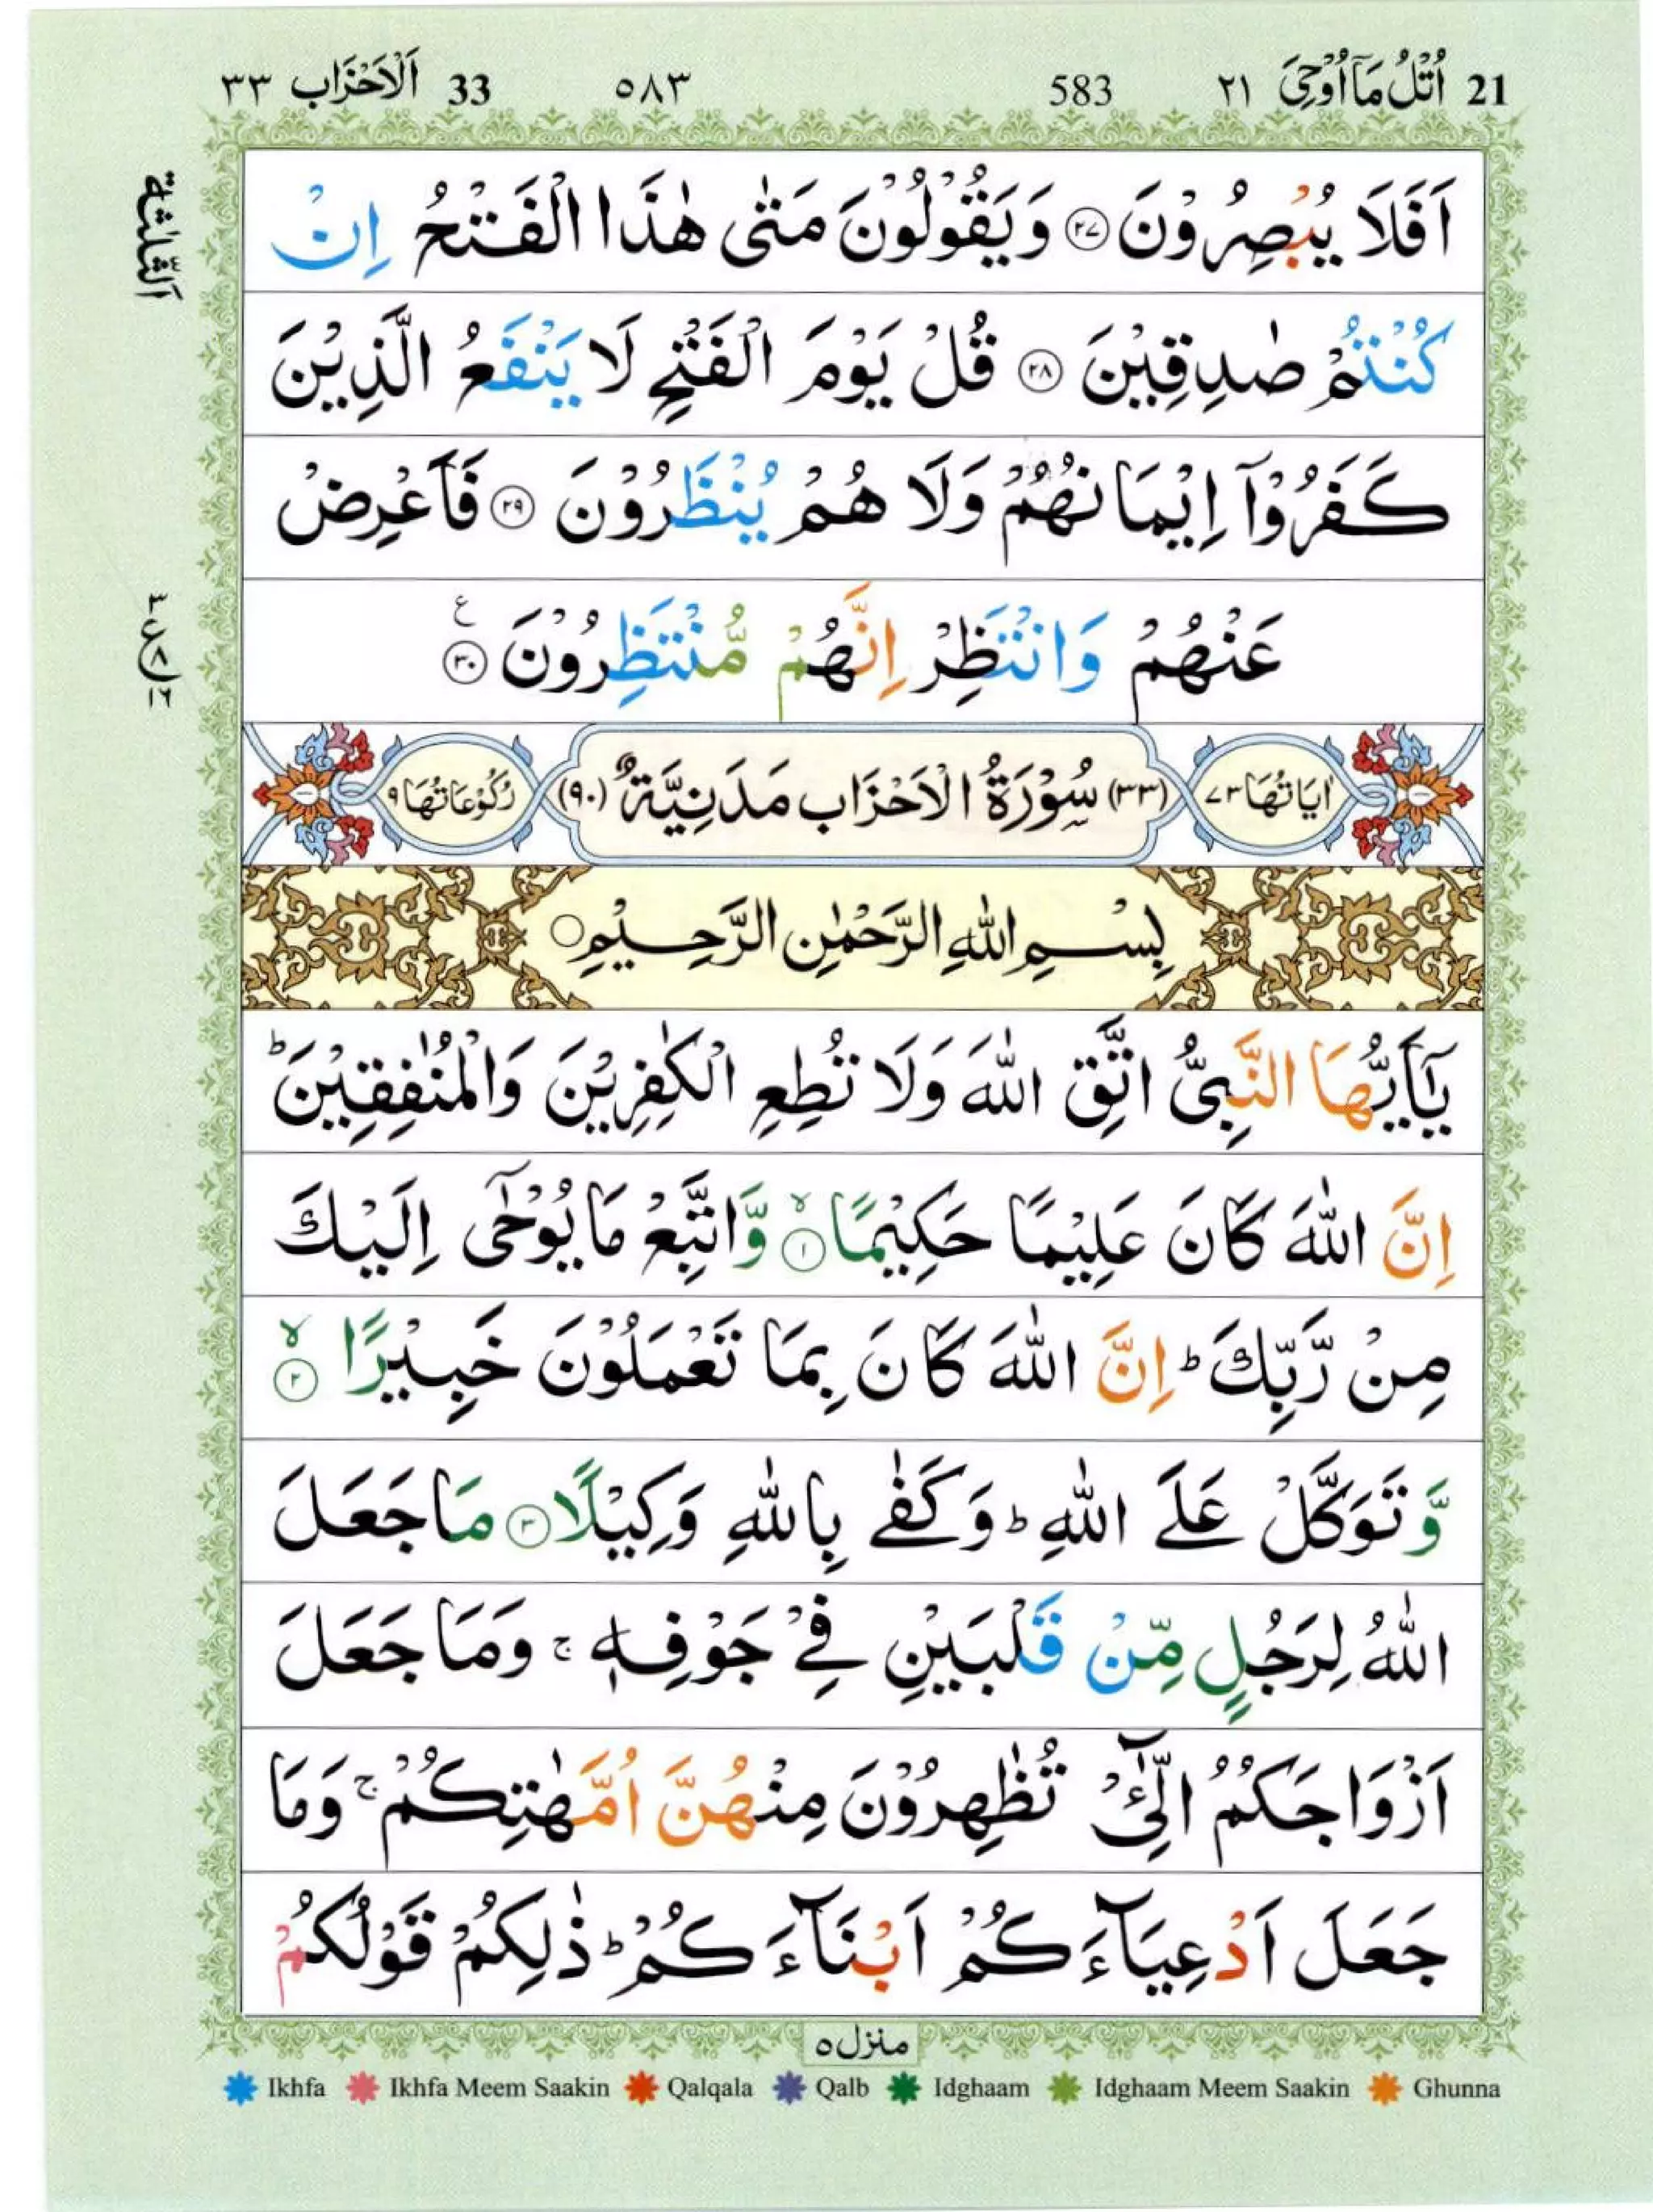 21 اُتْلُ مَاۤ اُوْحِیَ ٢١ 583 ٥٨٣ 33 اَلْاَحْزَاب ٣٣
اَلثَّلٰثَة
اَفَلَا یُبْصِرُوْنَ ﴿٢٧﴾ وَیَقُوْلُوْنَ مَتٰی هٰذَا الْفَتْحُ اِنْ
كُنْتُمْ صٰدِقِیْنَ ﴿٢٨﴾ قُلْ یَوْمَ الْفَتْحِ لَا یَنْفَعُ الَّذِیْنَ
كَفَرُوْۤا اِیْمَانُهُمْ وَلَا هُمْ یُنْظَرُوْنَ ﴿٢٩﴾ فَاَعْرِضْ
عَنْهُمْ وَانْتَظِرْ اِنَّهُمْ مُّنْتَظِرُوْنَ ﴿٣٠﴾ ع
اٰیَاتُهَا ٧٣ (٣٣) سُوْرَةُ الْاَحْزَاب مَدَنِیَّةٌ (٩٠) رُكُوْعَاتُهَا ٩
بِسْمِ اللّٰهِ الرَّحْمٰنِ الرَّحِیْمِ
یٰۤاَیُّهَا النَّبِیُّ اتَّقِ اللّٰهَ وَلَا تُطِعِ الْكٰفِرِیْنَ وَالْمُنٰفِقِیْنَ ؕ
اِنَّ اللّٰهَ كَانَ عَلِیْمًا حَكِیْمًا ﴿١﴾ۙ وَّاتَّبِعْ مَا یُوْحٰۤی اِلَیْكَ
مِنْ رَّبِّكَ ؕ اِنَّ اللّٰهَ كَانَ بِمَا تَعْمَلُوْنَ خَبِیْرًا ﴿٢﴾ۙ
وَّتَوَكَّلْ عَلَی اللّٰهِ ؕ وَكَفٰی بِاللّٰهِ وَكِیْلًا ﴿٣﴾ مَا جَعَلَ
اللّٰهُ لِرَجُلٍ مِّنْ قَلْبَیْنِ فِیْ جَوْفِهٖ ۚ وَمَا جَعَلَ
اَزْوَاجَكُمُ الّٰٓئِیْ تُظٰهِرُوْنَ مِنْهُنَّ اُمَّهٰتِكُمْ ۚ وَمَا
جَعَلَ اَدْعِیَآءَكُمْ اَبْنَآءَكُمْ ؕ ذٰلِكُمْ قَوْلُكُمْ
منزل ٥
Ikhfa Ikhfa Meem Saakin Qalqala Qalb Idghaam Idghaam Meem Saakin Ghunna